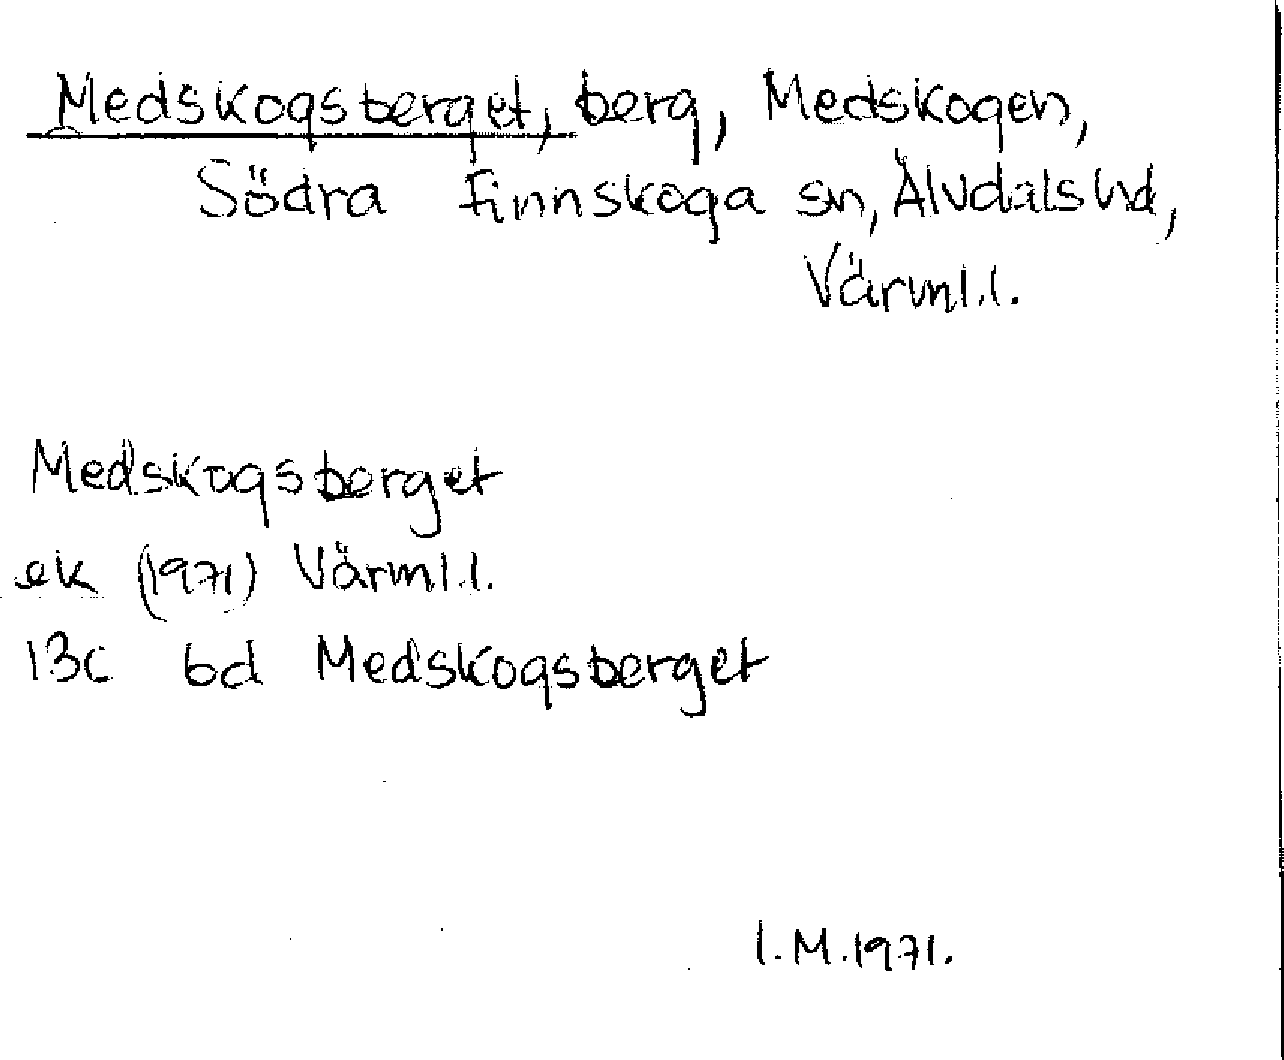 Medskogsberget, berg, Medskogen,
Södra Finnskoga sn, Älvdals hd,
Värml.l.
Medskogsberget
ek (1971) Värml.l.
13c bd Medskogsberget
I.M.1971.